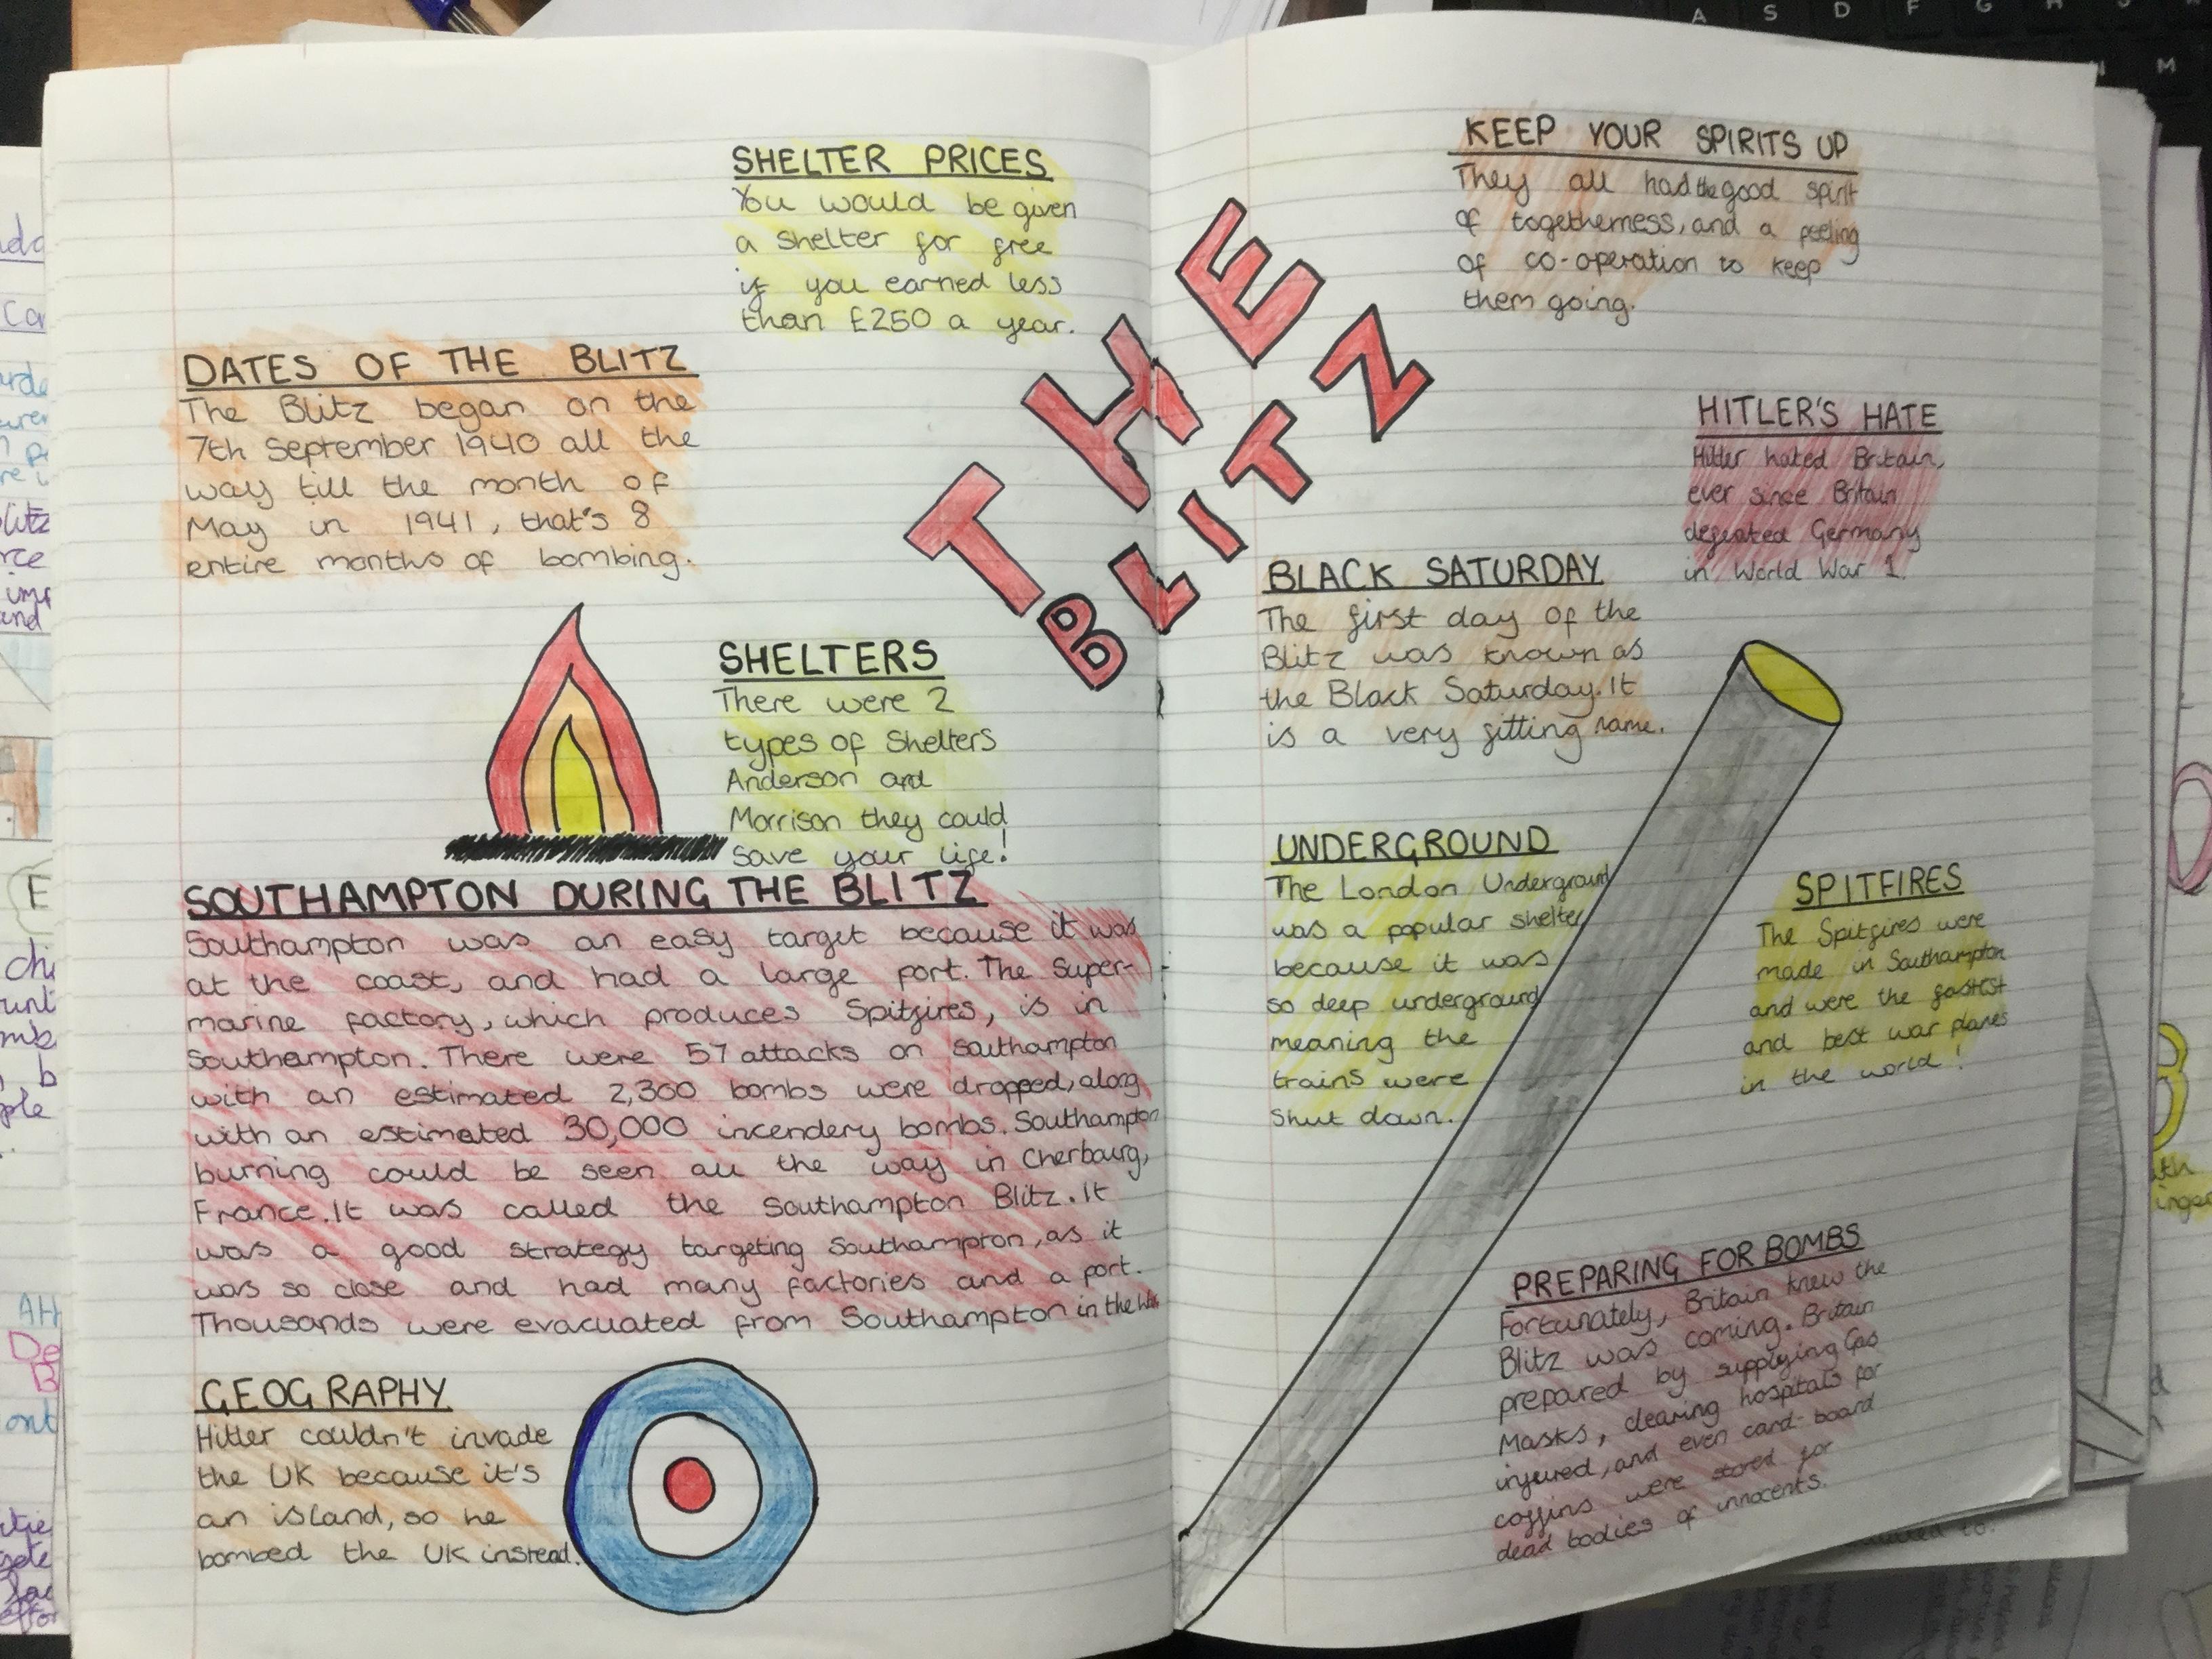 SHELTER PRICES
You would be given
a shelter for free
if you earned less
than £250 a year.
DATES OF THE BLITZ
The Blitz began on the
7th September 1940 all the
way till the month of
May in 1941, that's 8
entire months of bombing.
SHELTERS
There were 2
types of Shelters
Anderson and
Morrison they could
save your life!
SOUTHAMPTON DURING THE BLITZ
Southampton was an easy target because it was
at the coast, and had a large port. The Super-
marine factory, which produces Spitfires, is in
Southampton. There were 57 attacks on Southampton
with an estimated 2,300 bombs were dropped, along
with an estimated 30,000 incendery bombs. Southampton
burning could be seen all the way in Cherbourg,
France. It was called the Southampton Blitz. It
was a good strategy targeting Southampton, as it
was so close and had many factories and a port.
Thousands were evacuated from Southampton in the
GEOGRAPHY
Hitler couldn't invade
the UK because it's
an island, so he
bombed the UK instead.
THE
BLITZ
KEEP YOUR SPIRITS UP
They all had the good spirit
of togetherness, and a feeling
of co-operation to keep
them going.
HITLER'S HATE
Hitler hated Britain,
ever since Britain
defeated Germany
in World War 1.
BLACK SATURDAY
The first day of the
Blitz was known as
the Black Saturday. It
is a very fitting name.
UNDERGROUND
The London Underground
was a popular shelter
because it was
so deep underground
meaning the
trains were
shut down.
SPITFIRES
The Spitfires were
made in Southampton
and were the fastest
and best war planes
in the world!
PREPARING FOR BOMBS
Fortunately, Britain knew the
Blitz was coming. Britain
prepared by supplying Gas
Masks, clearing hospitals for
injured, and even card-board
coffins were stored for
dead bodies of innocents.
A S D F G H
M